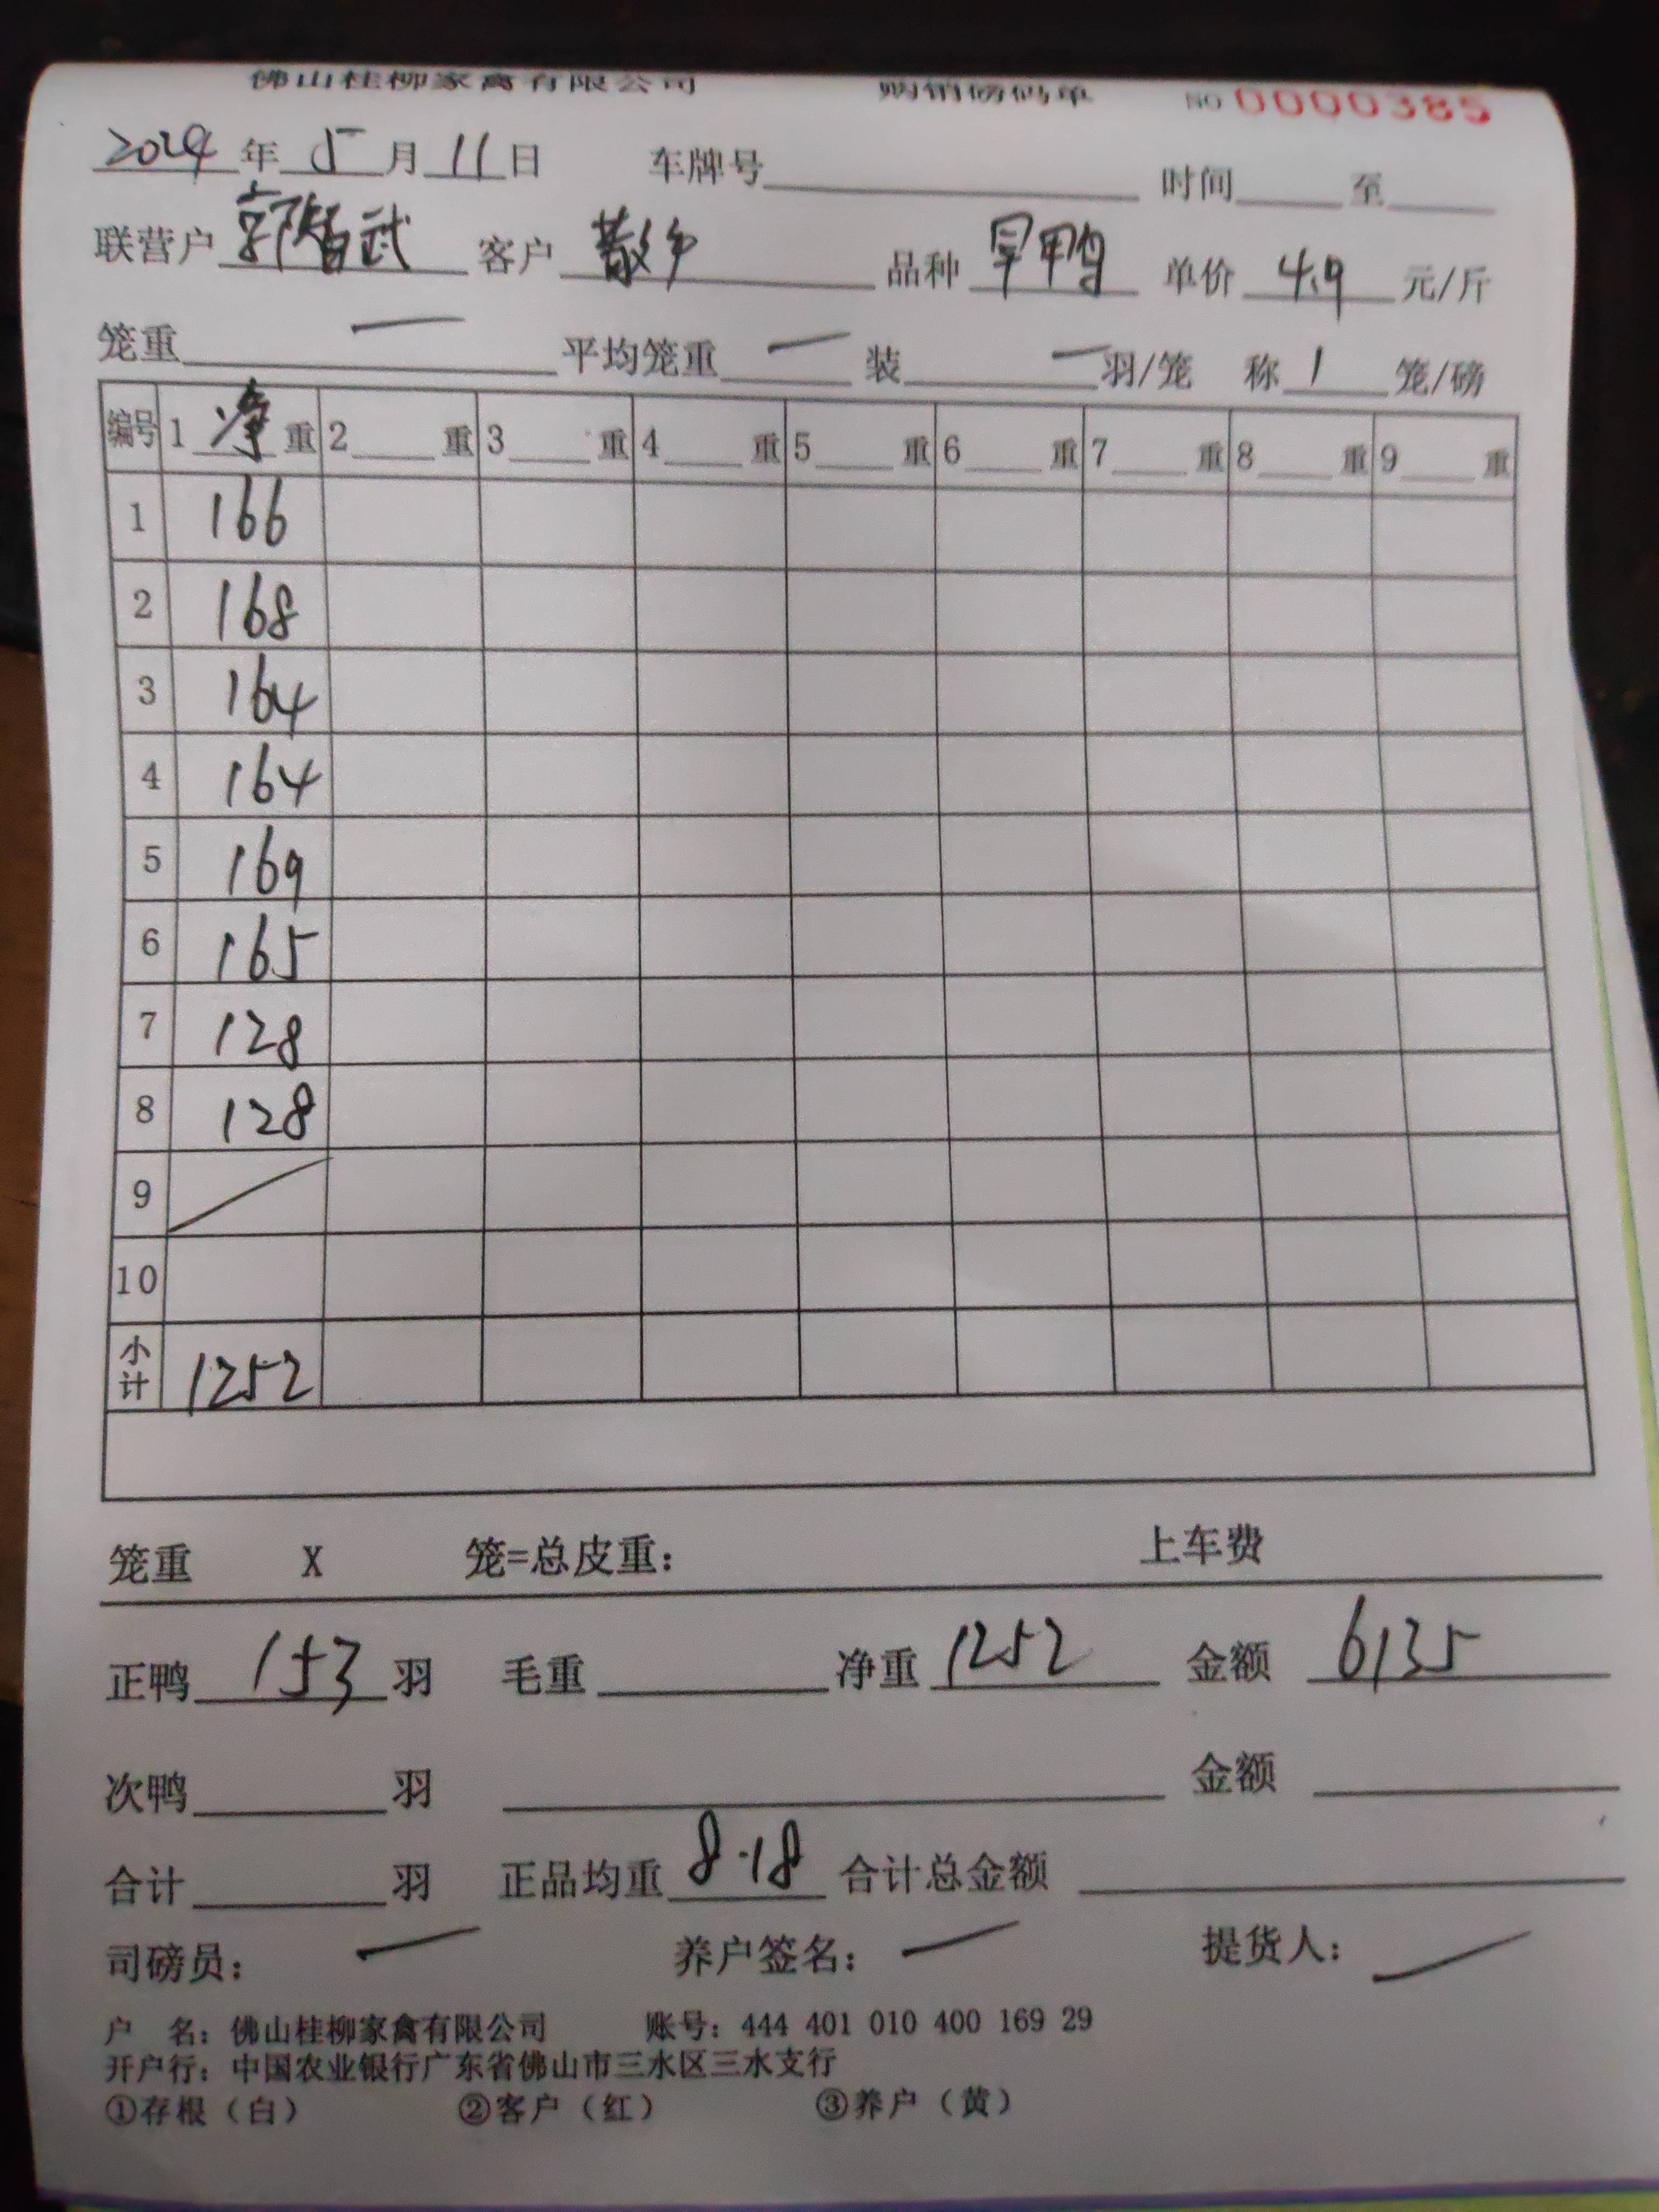 佛山桂柳家禽有限公司 购销磅码单 NO 0000385
2024年5月11日 车牌号 时间 至
联营户 郭智武 客户 散户 品种 旱鸭 单价 4.9 元/斤
笼重 一 平均笼重 一 装 一 羽/笼 称 1 笼/磅
编号 1 净 重 2 重 3 重 4 重 5 重 6 重 7 重 8 重 9 重
1 166
2 168
3 164
4 164
5 169
6 165
7 128
8 128
9
10
小计 1252
笼重 X 笼=总皮重： 上车费
正鸭 153 羽 毛重 净重 1252 金额 6135
次鸭 羽 金额
合计 羽 正品均重 8.18 合计总金额
司磅员： 养户签名： 提货人：
户 名：佛山桂柳家禽有限公司 账号：444 401 010 400 169 29
开户行：中国农业银行广东省佛山市三水区三水支行
①存根（白） ②客户（红） ③养户（黄）